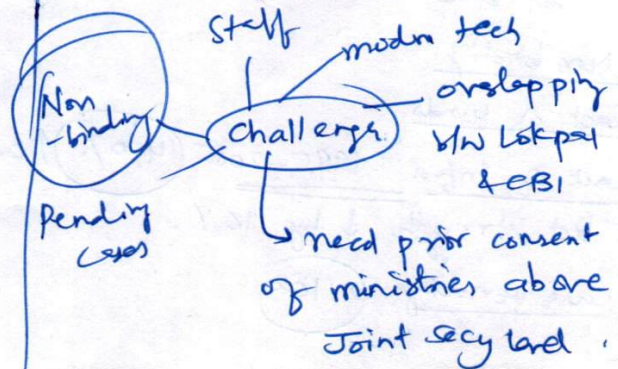 Staff
modrn tech
Non
-binding
challenges
overlapping
b/w Lokpal
& CBI
Pending
cases
need prior consent
of ministries above
Joint Secy level.